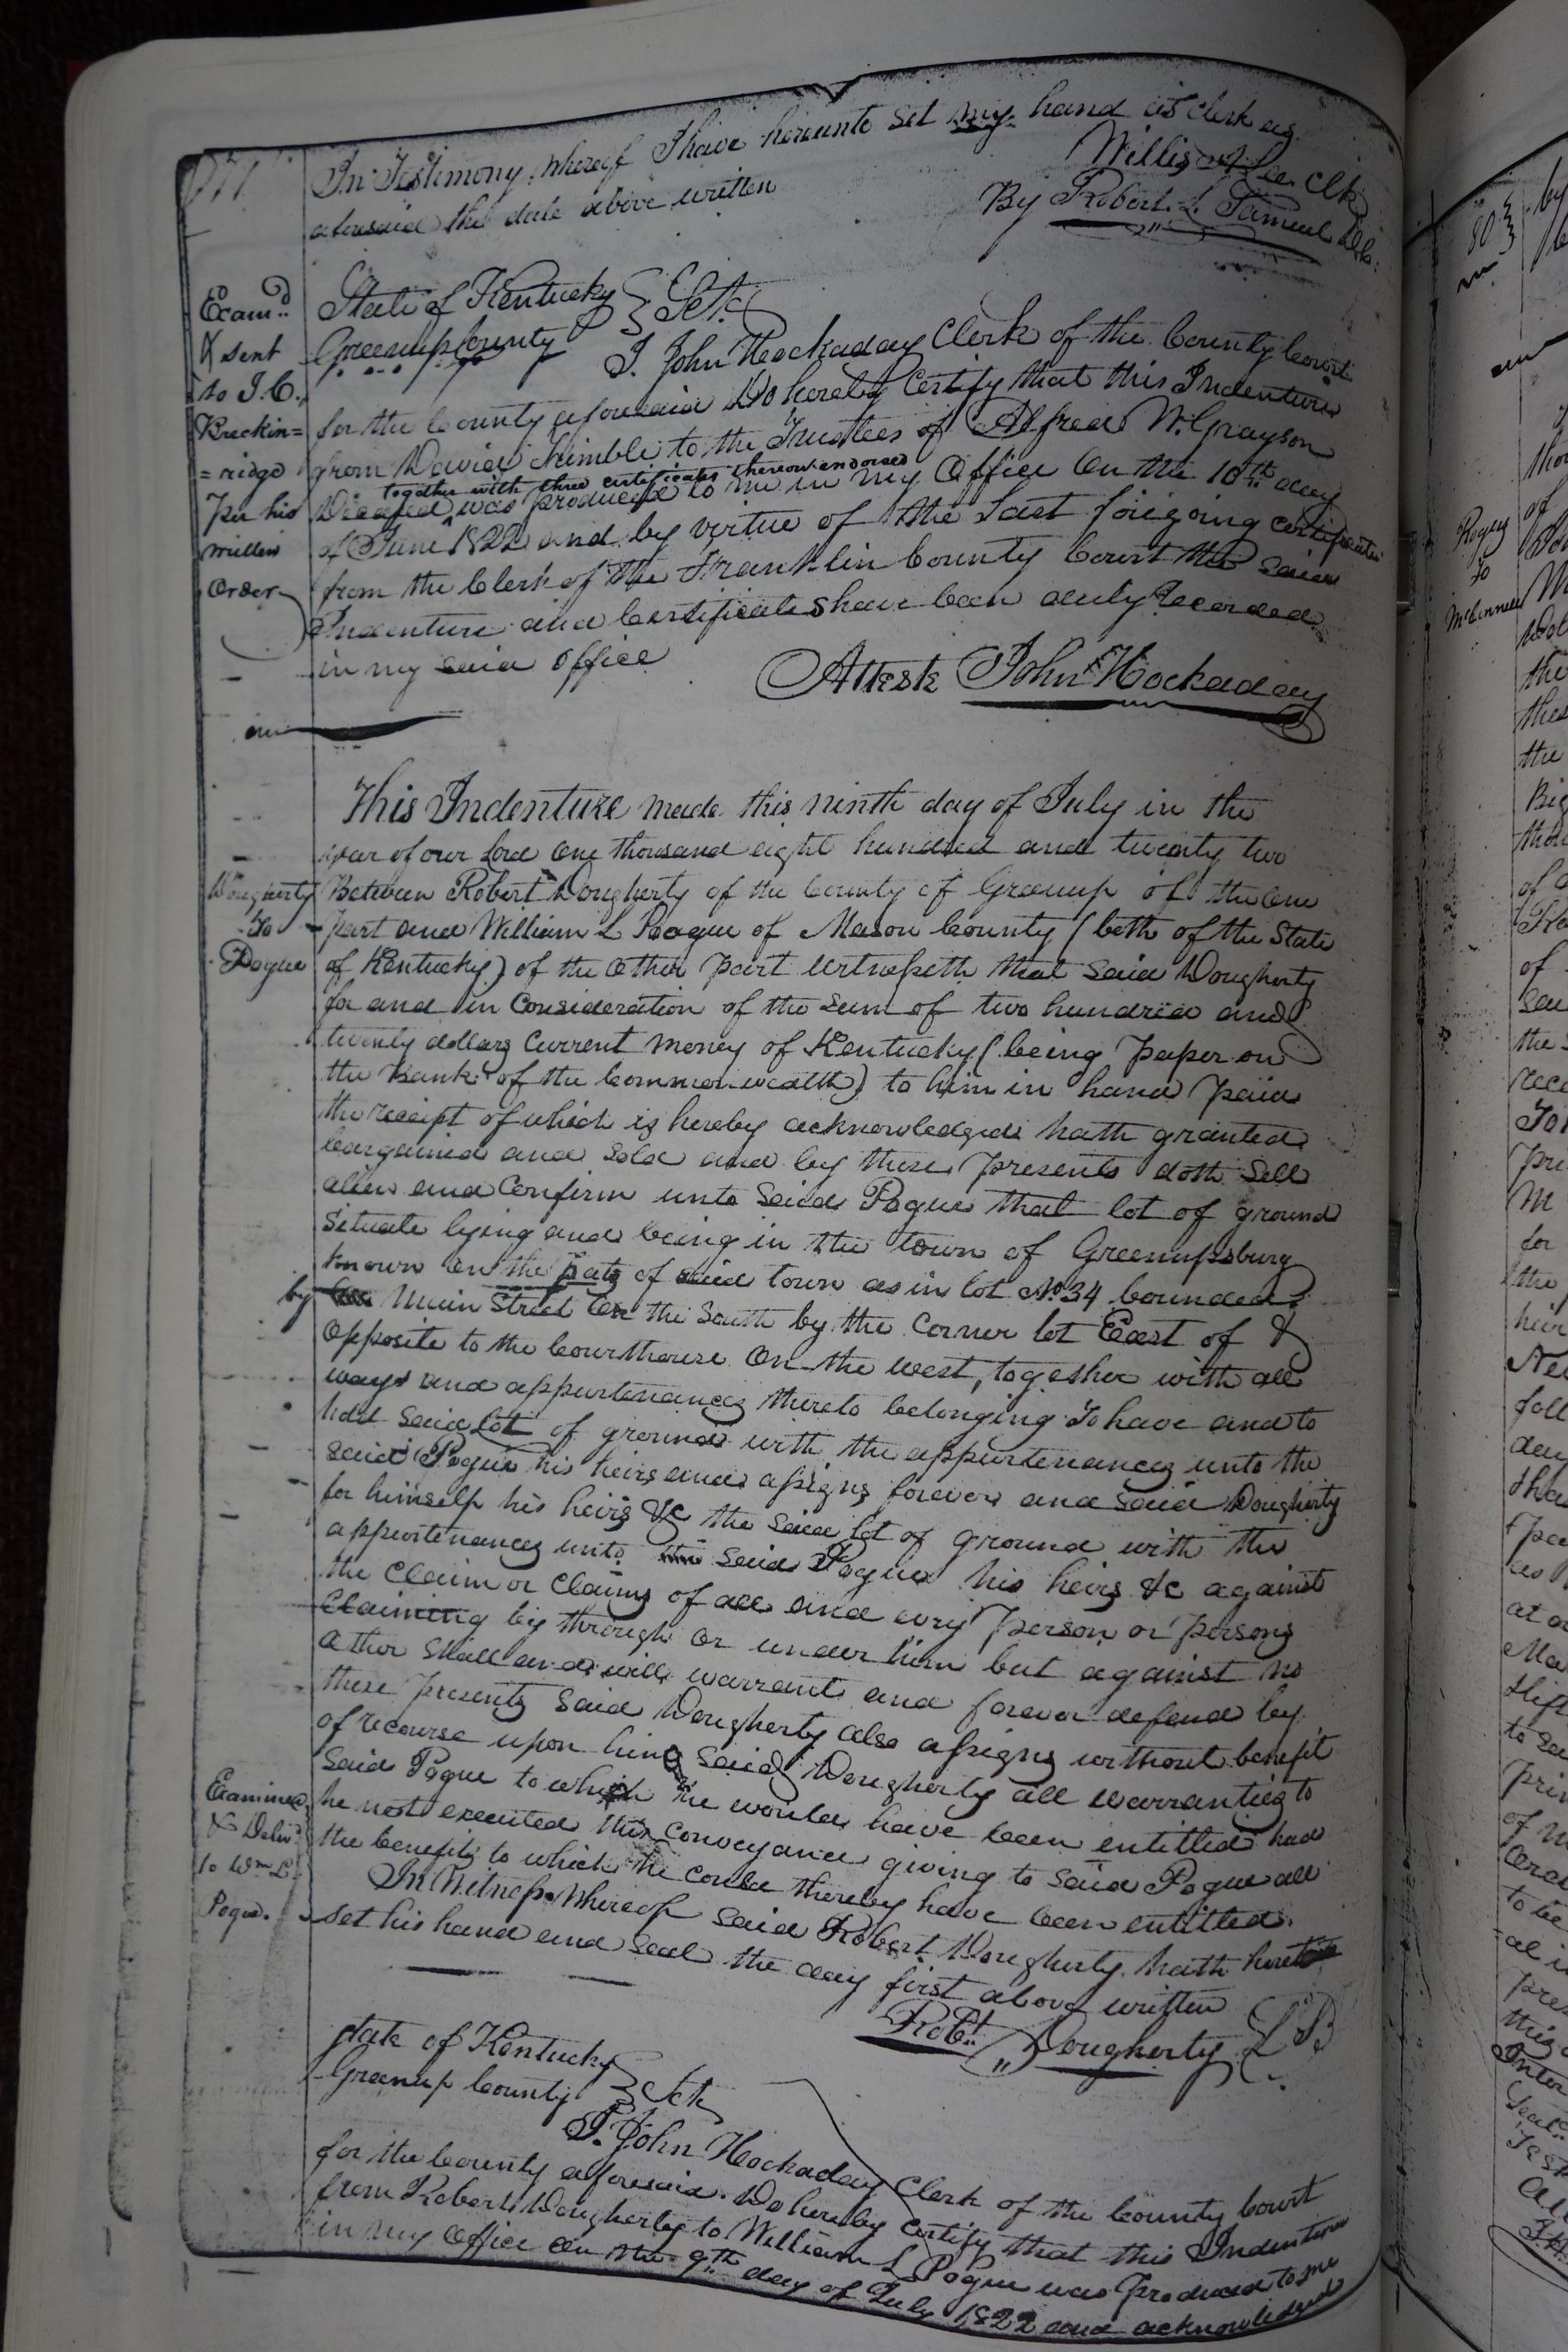 In Testimony whereof I have hereunto set my hand as clerk as
aforesaid the date above written
Willis A Lee Clk
By Robert L Samuel Dk.
State of Kentucky } Sct.
Greenup County
I. John Hockaday Clerk of the County Court
for the County aforesaid Do hereby Certify that this Indenture
from David Trimble to the Trustees of Alfred W. Grayson
together with three certificates thereon endorsed
Deceased was produced to me in my Office On the 10th day
of June 1822 and by virtue of the Last foregoing certificate
from the Clerk of the Franklin County Court the said
Indenture and Certificates have been duly Recorded
in my said Office
Attest John Hockaday
Exam.d
& sent
to J. C.
Breckin=
=ridge
Per his
written
Order
This Indenture made this ninth day of July in the
year of our Lord One thousand eight hundred and twenty two
Between Robert Dougherty of the County of Greenup of the one
part and William L Poague of Mason County (both of the State
of Kentucky) of the other part witnesseth that said Dougherty
for and in Consideration of the sum of two hundred and
twenty dollars Current money of Kentucky (being paper on
the Bank of the Commonwealth) to him in hand paid
the receipt of which is hereby acknowledged hath granted
bargained and sold and by these presents doth sell
alien and Confirm unto said Pogue that lot of ground
situate lying and being in the town of Greenupsburg
known on the plat of said town as in lot No 34 bounded
by Main Street on the South by the Corner lot East of &
Opposite to the Courthouse On the west, together with all
ways and appurtenances thereto belonging To have and to
hold said lot of ground with the appurtenances unto the
said Pogue his heirs and assigns forever and said Dougherty
for himself his heirs &c the said lot of ground with the
appurtenances unto the said Pogue his heirs &c against
the Claim or Claims of all and evry person or persons
Claiming by through or under him but against no
other shall and will warrant and forever defend by
these presents said Dougherty also assigns without benefit
of recourse upon him said Dougherty all warranties to
said Pogue to which he would have been entitled had
he not executed this conveyance giving to said Pogue all
the benefits to which he could thereby have been entitled.
In Witness Whereof said Robert Dougherty hath hereto
set his hand and seal the day first above written
Robt. Dougherty
Dougherty
to
Pogue
Examined
& Deliv.d
to Wm L
Pogue.
State of Kentucky } Sct
Greenup County
I. John Hockaday Clerk of the County Court
for the County aforesaid. Do hereby Certify that this Indenture
from Robert Dougherty to William L Pogue was produced to me
in my Office on the 9th day of July 1822 and acknowledged
Rogers
to
McConnell